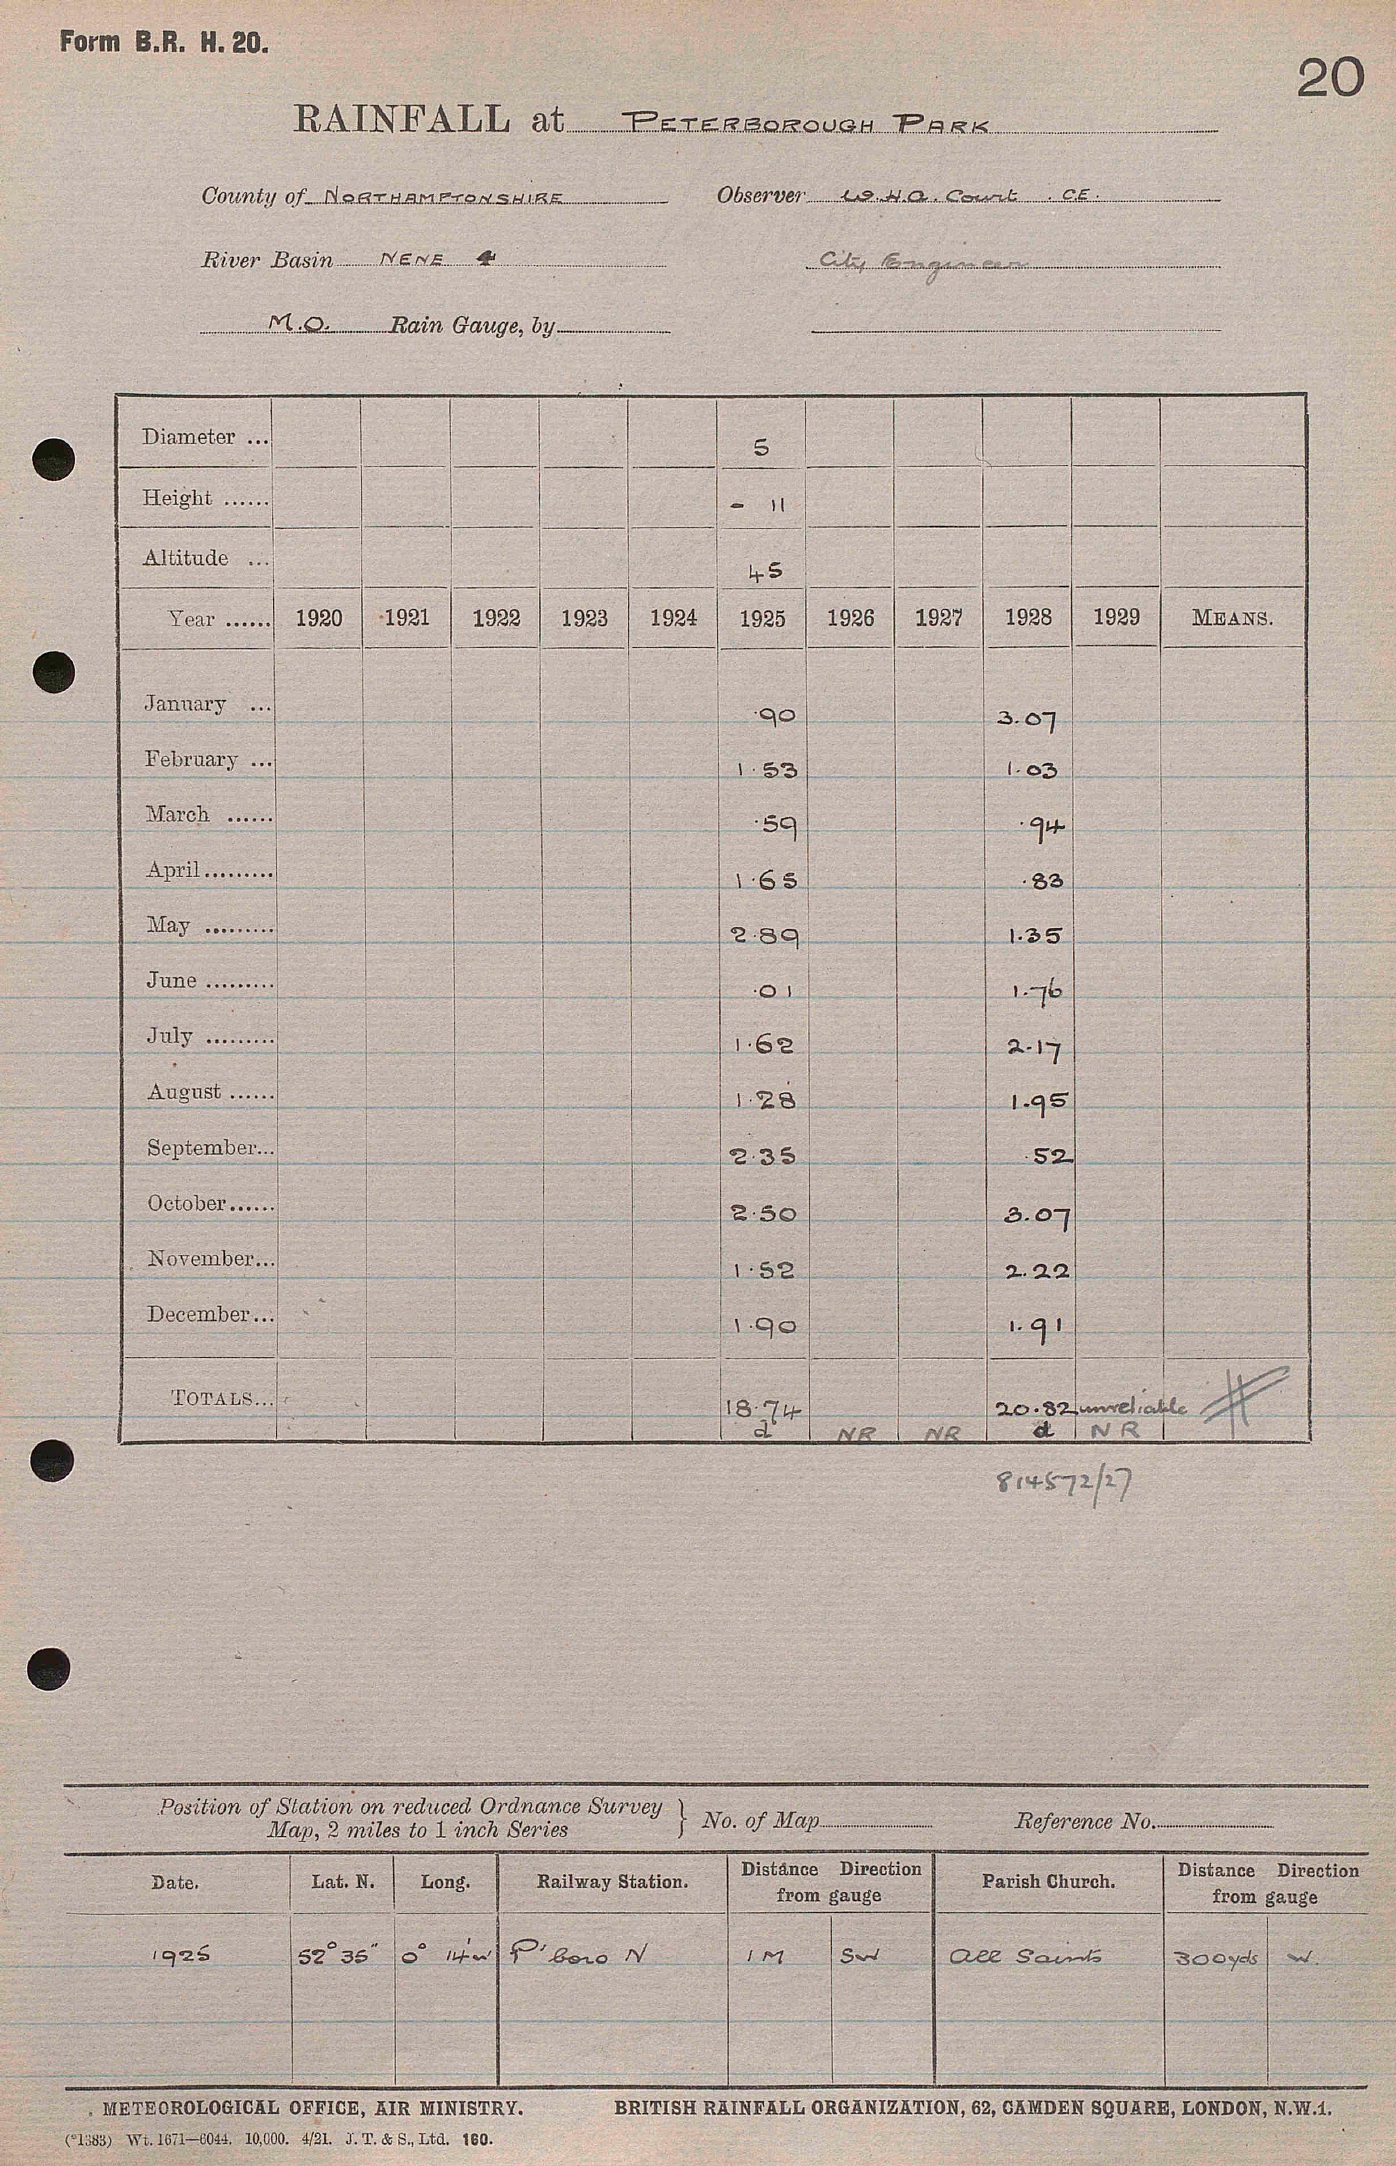 Form B.R. H. 20.
20
RAINFALL at PETERBOROUGH PARK
County of NORTHAMPTONSHIRE Observer W.H.G. Court . C.E.
River Basin NENE 4 City Engineer
M.O. Rain Gauge, by
Diameter ... 5
Height ...... - 11
Altitude ... 45
Year ...... 1920 1921 1922 1923 1924 1925 1926 1927 1928 1929 MEANS.
January ... .90 3.07
February ... 1.53 1.03
March ...... .59 .94
April......... 1.65 .83
May ......... 2.89 1.35
June ......... .01 1.76
July ......... 1.62 2.17
August ...... 1.28 1.95
September... 2.35 .52
October...... 2.50 3.07
November... 1.52 2.22
December... 1.90 1.91
TOTALS... 18.74 20.82 unreliable
d NR NR d NR
814572/27
Position of Station on reduced Ordnance Survey
Map, 2 miles to 1 inch Series } No. of Map Reference No.
Date. Lat. N. Long. Railway Station. Distance Direction from gauge Parish Church. Distance Direction from gauge
1925 52° 35" 0° 14'W P'boro N 1 M SW All Saints 300yds W.
METEOROLOGICAL OFFICE, AIR MINISTRY. BRITISH RAINFALL ORGANIZATION, 62, CAMDEN SQUARE, LONDON, N.W.1.
(*1383) Wt. 1671—6044. 10,000. 4/21. J. T. & S., Ltd. 160.